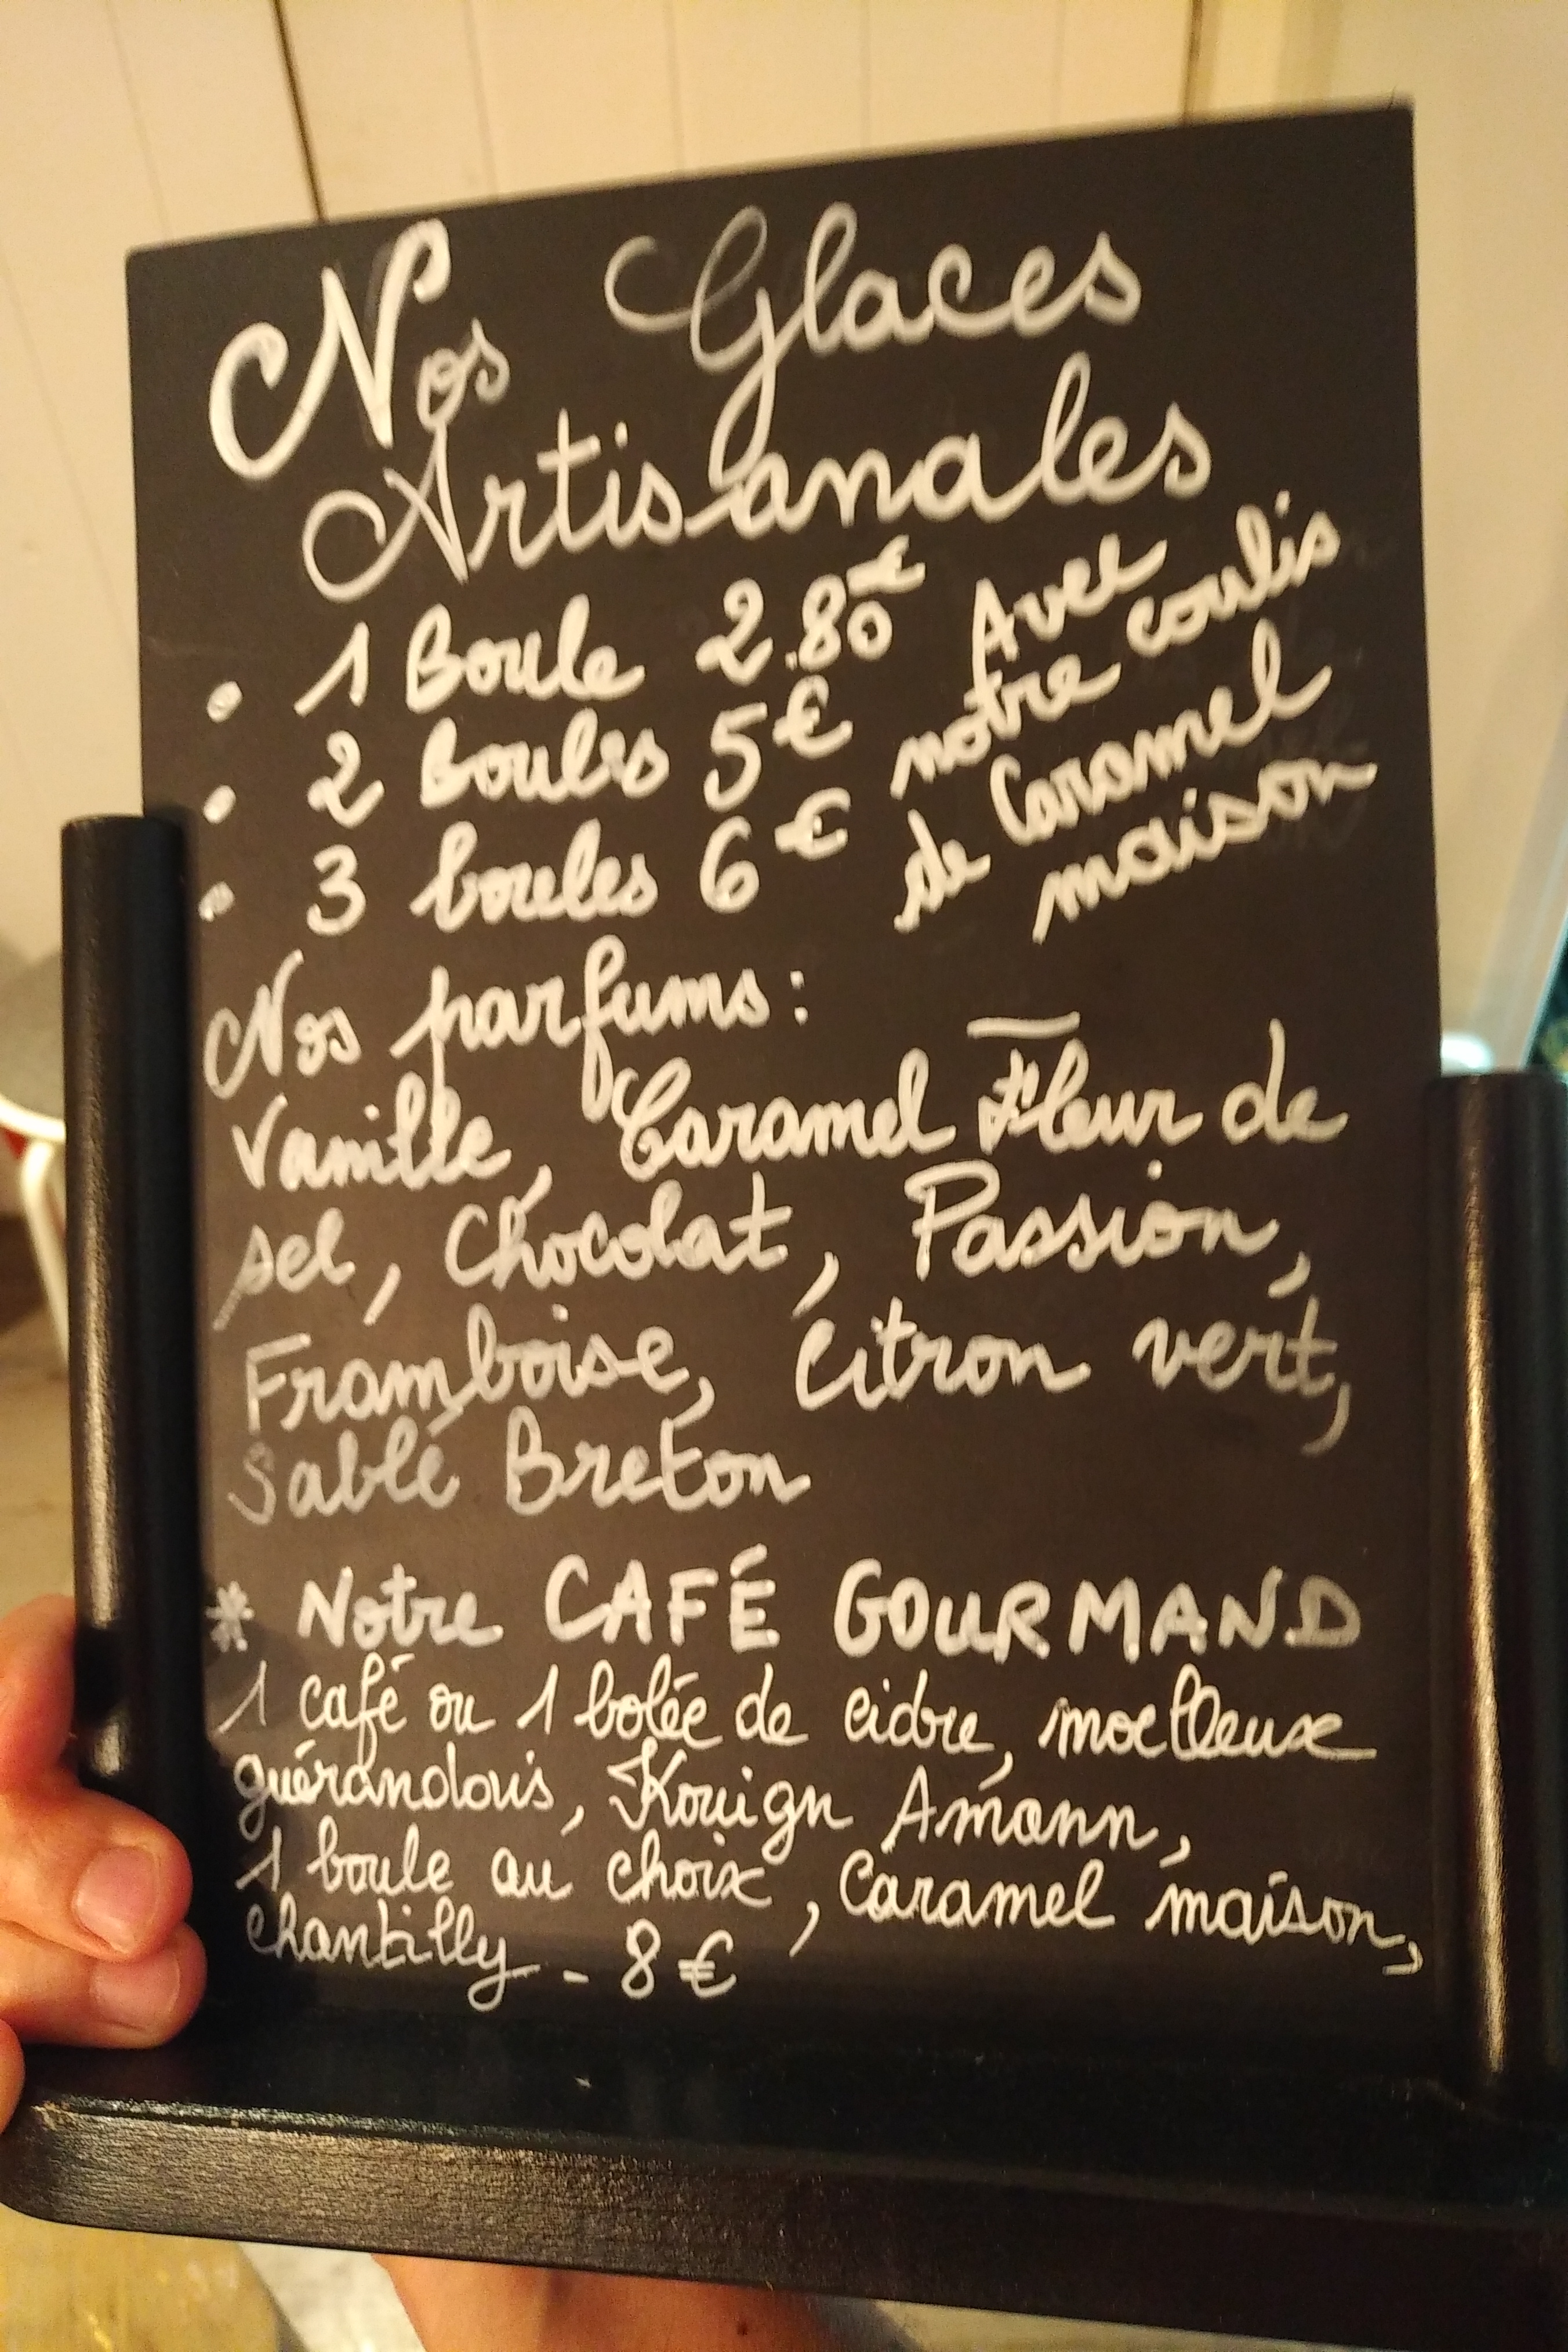 Nos Glaces
Artisanales
• 1 Boule 2.80€
• 2 Boules 5€
• 3 boules 6€
Avec
notre coulis
de Caramel
maison
Nos parfums:
Vanille, Caramel Fleur de
sel, Chocolat, Passion,
Framboise, Citron vert,
Sablé Breton
* Notre CAFÉ GOURMAND
1 café ou 1 bolée de cidre, moelleux
guérandais, Kouign Amann,
1 boule au choix, Caramel maison,
chantilly - 8€